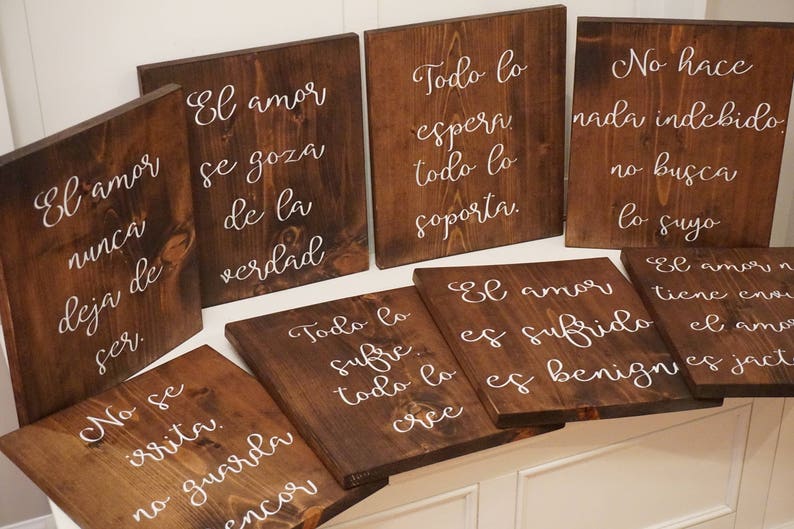 El amor
nunca
deja de
ser.
El amor
se goza
de la
verdad
Todo lo
espera
todo lo
soporta.
No hace
nada indebido.
no busca
lo suyo
No se
irrita.
no guarda
encor
Todo lo
sufre.
todo lo
cree
El amor
es sufrido
es benign
El amor n
tiene envi
el amor
es jact